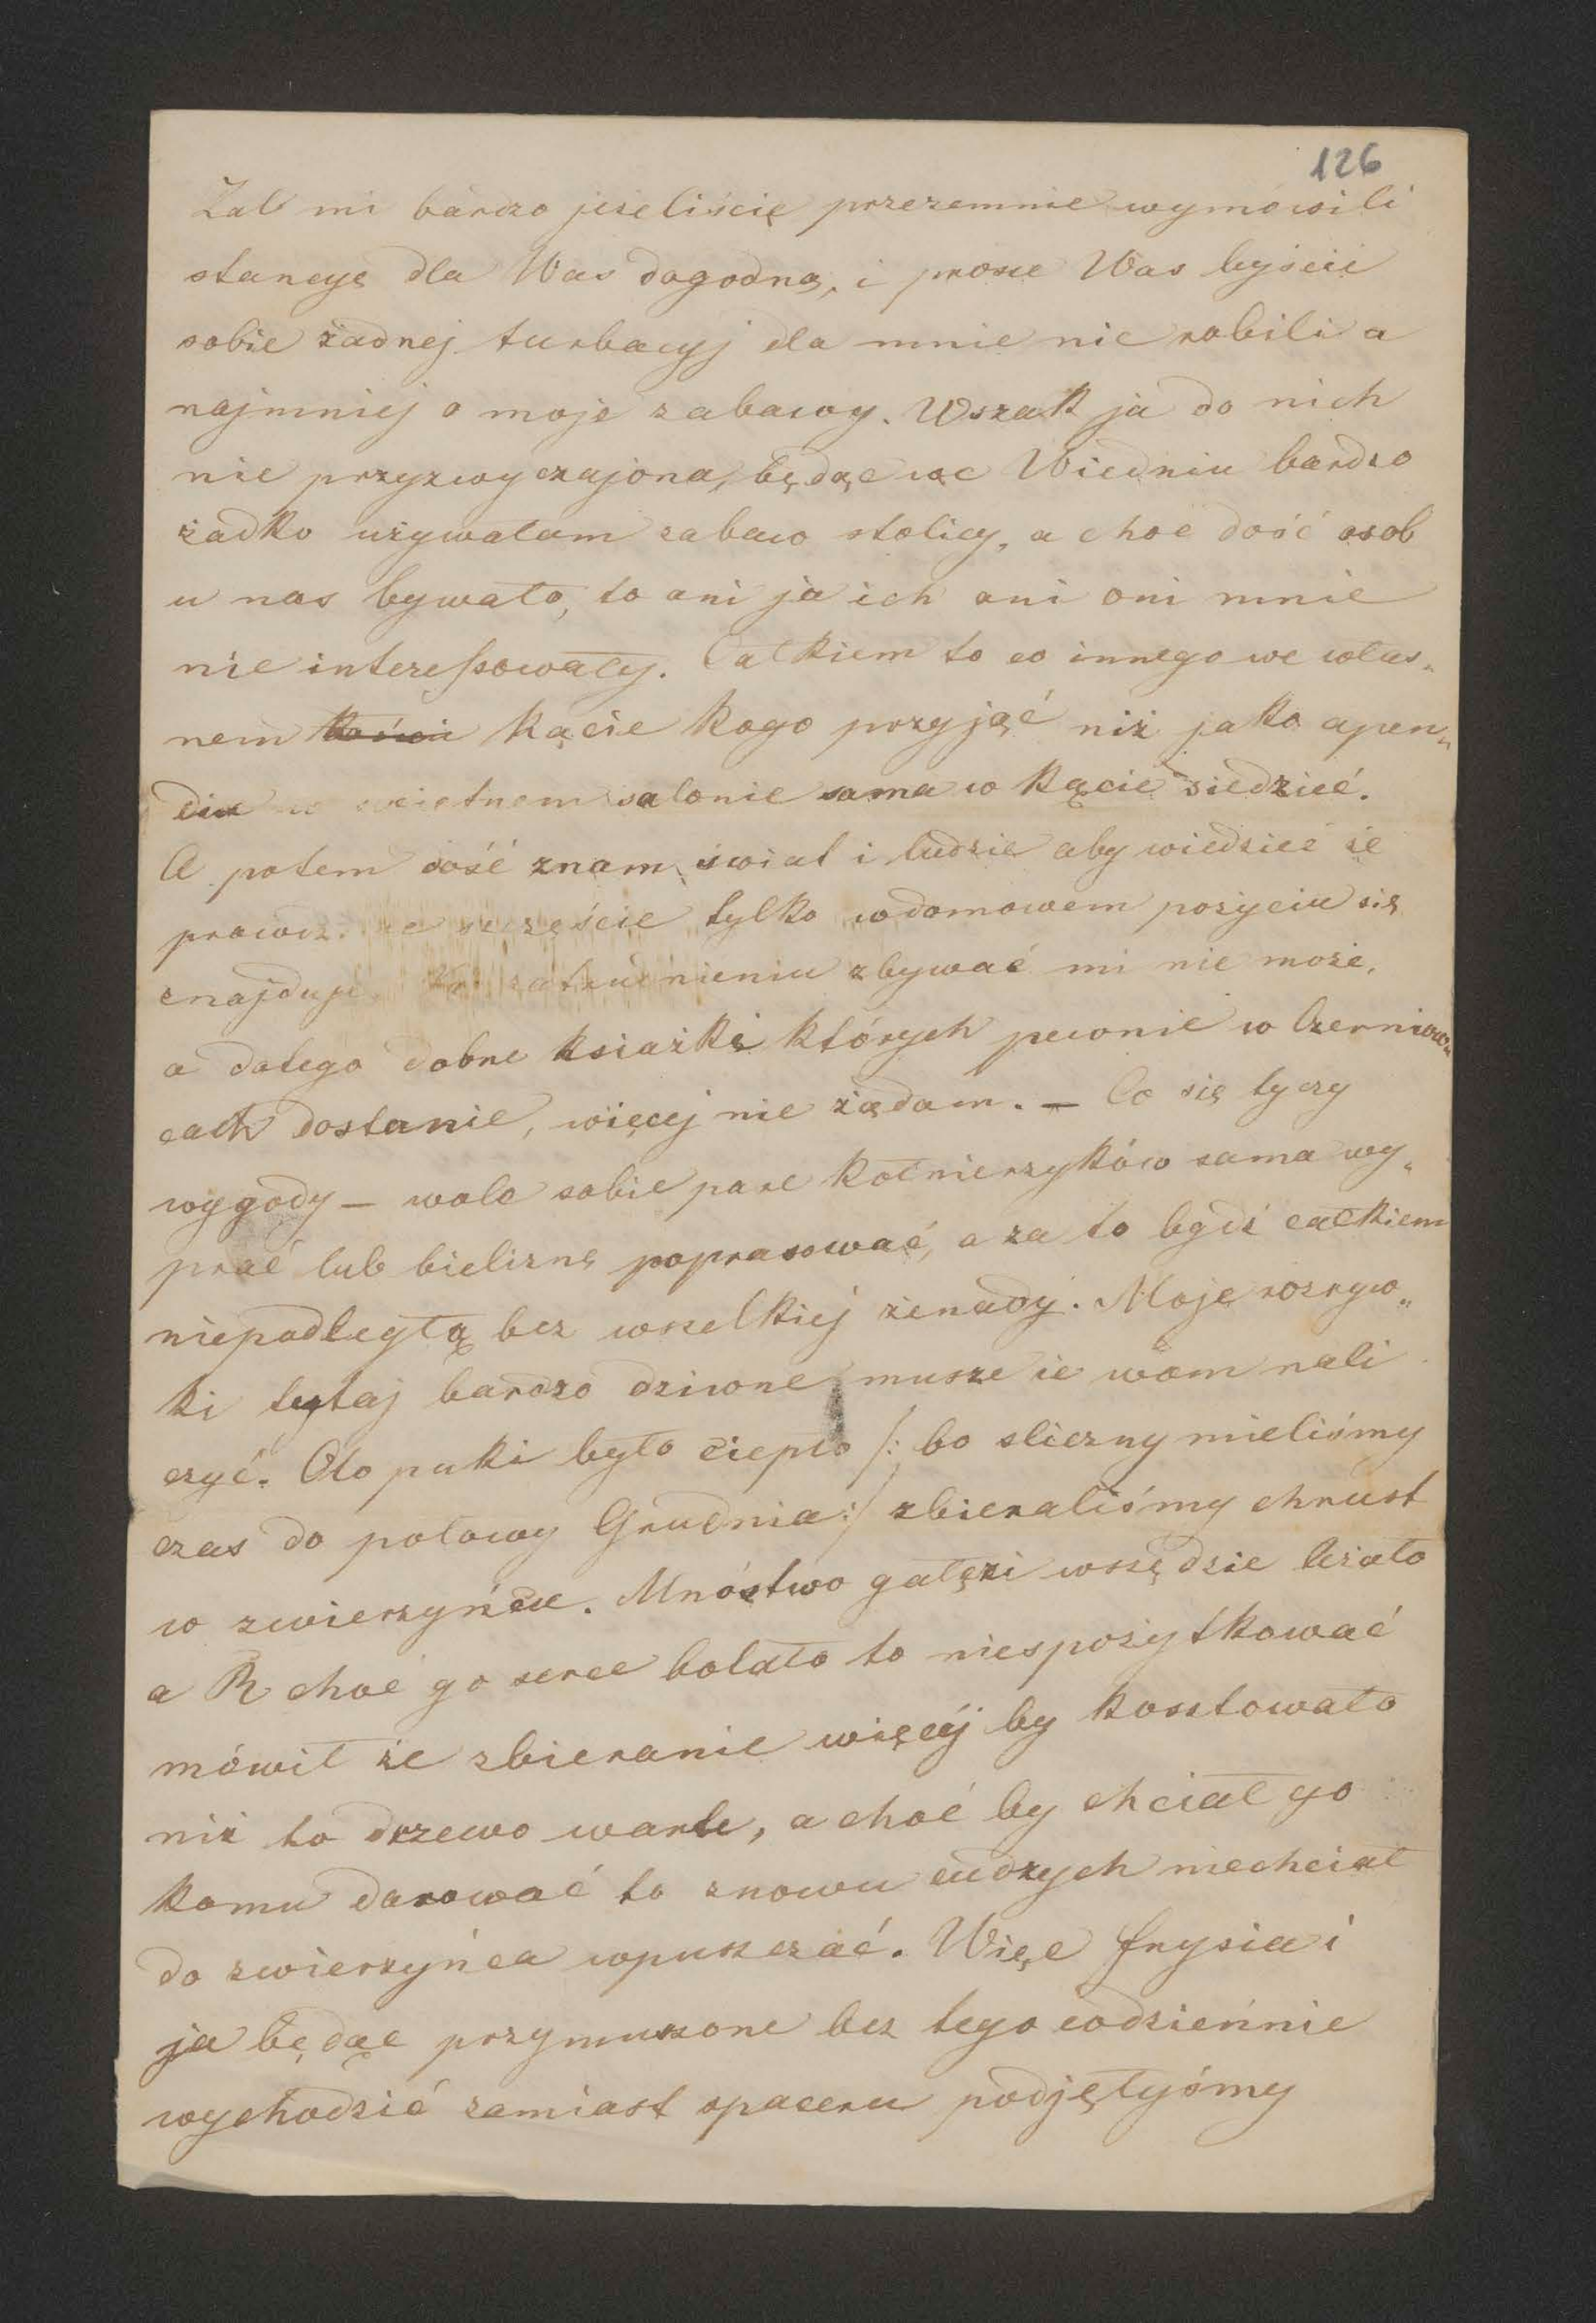 126
Żal mi bardzo jeżeliście przezemnie wymówili
stancyę dla Was dogodną, i prosze Was byście
sobie żadnej turbacyj dla mnie nie robili a
najmniej o moje zabawy. Wszak ja do nich
nie przyzwyczajona, będąc we Wiedniu bardzo
żadko używałam zabaw stolicy, a choć dość osob
u nas bywało, to ani ja ich ani oni mnie
nie interessowały. Całkiem to co innego we włas„
nem kącie kogo przyjąć niż jako apen„
dix w swietnem salonie sama w kącie siedzieć.
A potem dość znam świat i ludzie aby wiedzieć że
prawdz. szczęście tylko w domowem pożyciu się
znajduje. zatrudnieniu zbywać mi nie może,
a dotego dobre ksiażki których pewnie w Czerniow„
cach dostanie, więcej nie żądam. — Co się tyczy
wygody — wole sobie pare kołnierzyków sama wy„
prać lub bieliznę poprasować, a za to bydź całkiem
niepodległą bez wszelkiej żenady. Moje rozryw„
ki tutaj bardzo dziwne musze ie wam nali
czyć. Oto puki było ciepło /: bo sliczny mieliśmy
czas do połowy Grudnia :/ zbieraliśmy chrust
w zwierzyńcu. Mnóstwo gałęzi wszędzie leżało
a R choć go serce bolało to niespożytkować
mówił że zbieranie więcéj by kosztowało
niż to drzewo warte, a choć by chciał go
komu darować to znowu cudzych niechciał
do zwierzyńca wpuszczać. Więc Frysia i
ja będąc przymuszone bez tego codziennie
wychodzić zamiast spaceru podjęłyśmy